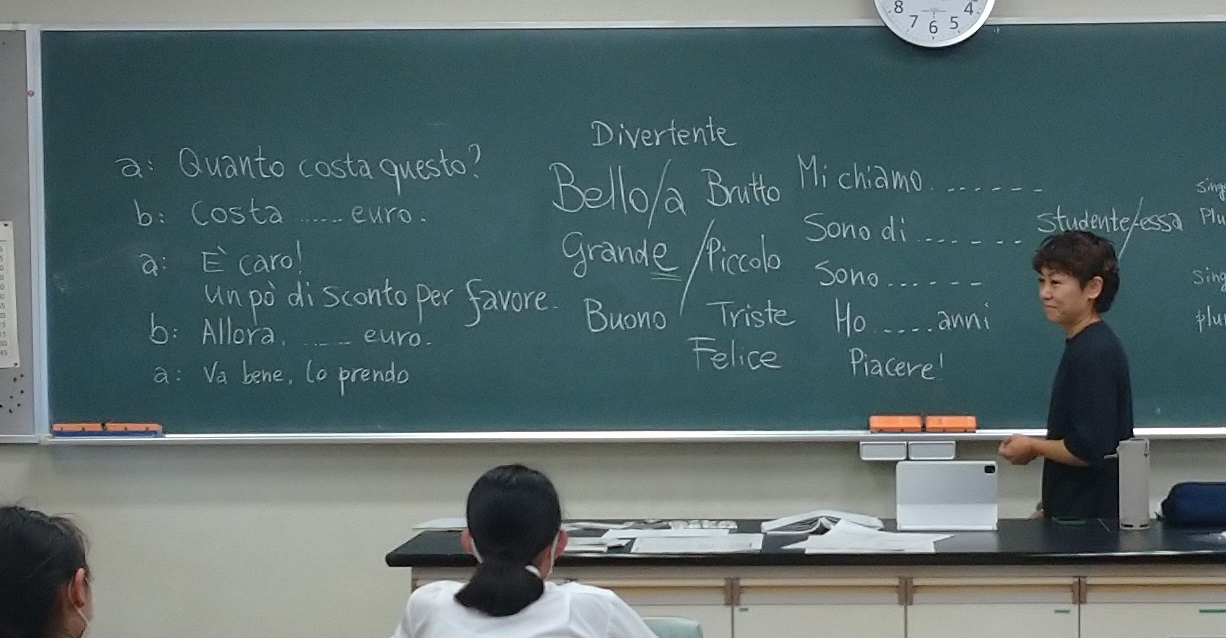 8 7 6 5 4
a: Quanto costa questo?
b: Costa ...... euro.
a: È caro!
Un pò di sconto per favore.
b: Allora, ...... euro.
a: Va bene, lo prendo
Divertente
Bello/a Brutto
Grande / Piccolo
Buono Triste
Felice
Mi chiamo .......
Sono di .......
Sono ......
Ho ..... anni
Piacere!
Studente/-essa